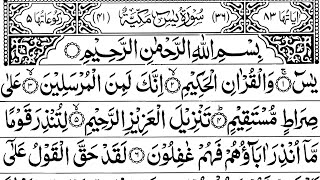 اٰیاتها ٨٣ (٣٦) سُوْرَةُ یٰسٓ مَكِّیَّةٌ (٤١) رکوعاتها ٥
بِسْمِ اللّٰهِ الرَّحْمٰنِ الرَّحِیْمِ
یٰسٓ ١ وَالْقُرْاٰنِ الْحَكِیْمِ ٢ اِنَّكَ لَمِنَ الْمُرْسَلِیْنَ ٣ عَلٰی
صِرَاطٍ مُّسْتَقِیْمٍ ٤ تَنْزِیْلَ الْعَزِیْزِ الرَّحِیْمِ ٥ لِتُنْذِرَ قَوْمًا
مَّاۤ اُنْذِرَ اٰبَآؤُهُمْ فَهُمْ غٰفِلُوْنَ ٦ لَقَدْ حَقَّ الْقَوْلُ عَلٰۤی